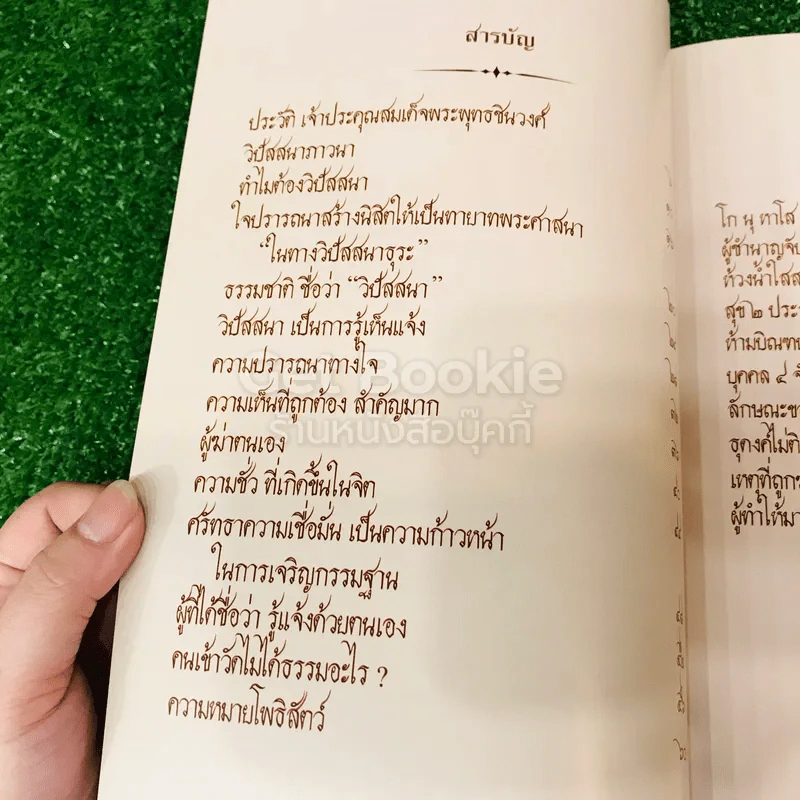 สารบัญ
ประวัติ เจ้าประคุณสมเด็จพระพุทธชินวงศ์
วิปัสสนาภาวนา
ทำไมต้องวิปัสสนา
ใจปรารถนาสร้างนิสิตให้เป็นทายาทพระศาสนา
“ในทางวิปัสสนาธุระ”
ธรรมชาติ ชื่อว่า “วิปัสสนา”
วิปัสสนา เป็นการรู้เห็นแจ้ง
ความปรารถนาทางใจ
ความเห็นที่ถูกต้อง สำคัญมาก
ผู้ฆ่าตนเอง
ความชั่ว ที่เกิดขึ้นในจิต
ศรัทธาความเชื่อมั่น เป็นความก้าวหน้า
ในการเจริญกรรมฐาน
ผู้ที่ได้ชื่อว่า รู้แจ้งด้วยตนเอง
คนเข้าวัดไม่ได้ธรรมอะไร ?
ความหมายโพธิสัตว์
โก นุ หาโส
ผู้ชำนาญ
ห้วงน้ำใส
สุข ๒
บุคคล ๔
เหตุที่ถูก
ผู้ทำให้
Get Bookie
ร้านหนังสือบุ๊คกี้